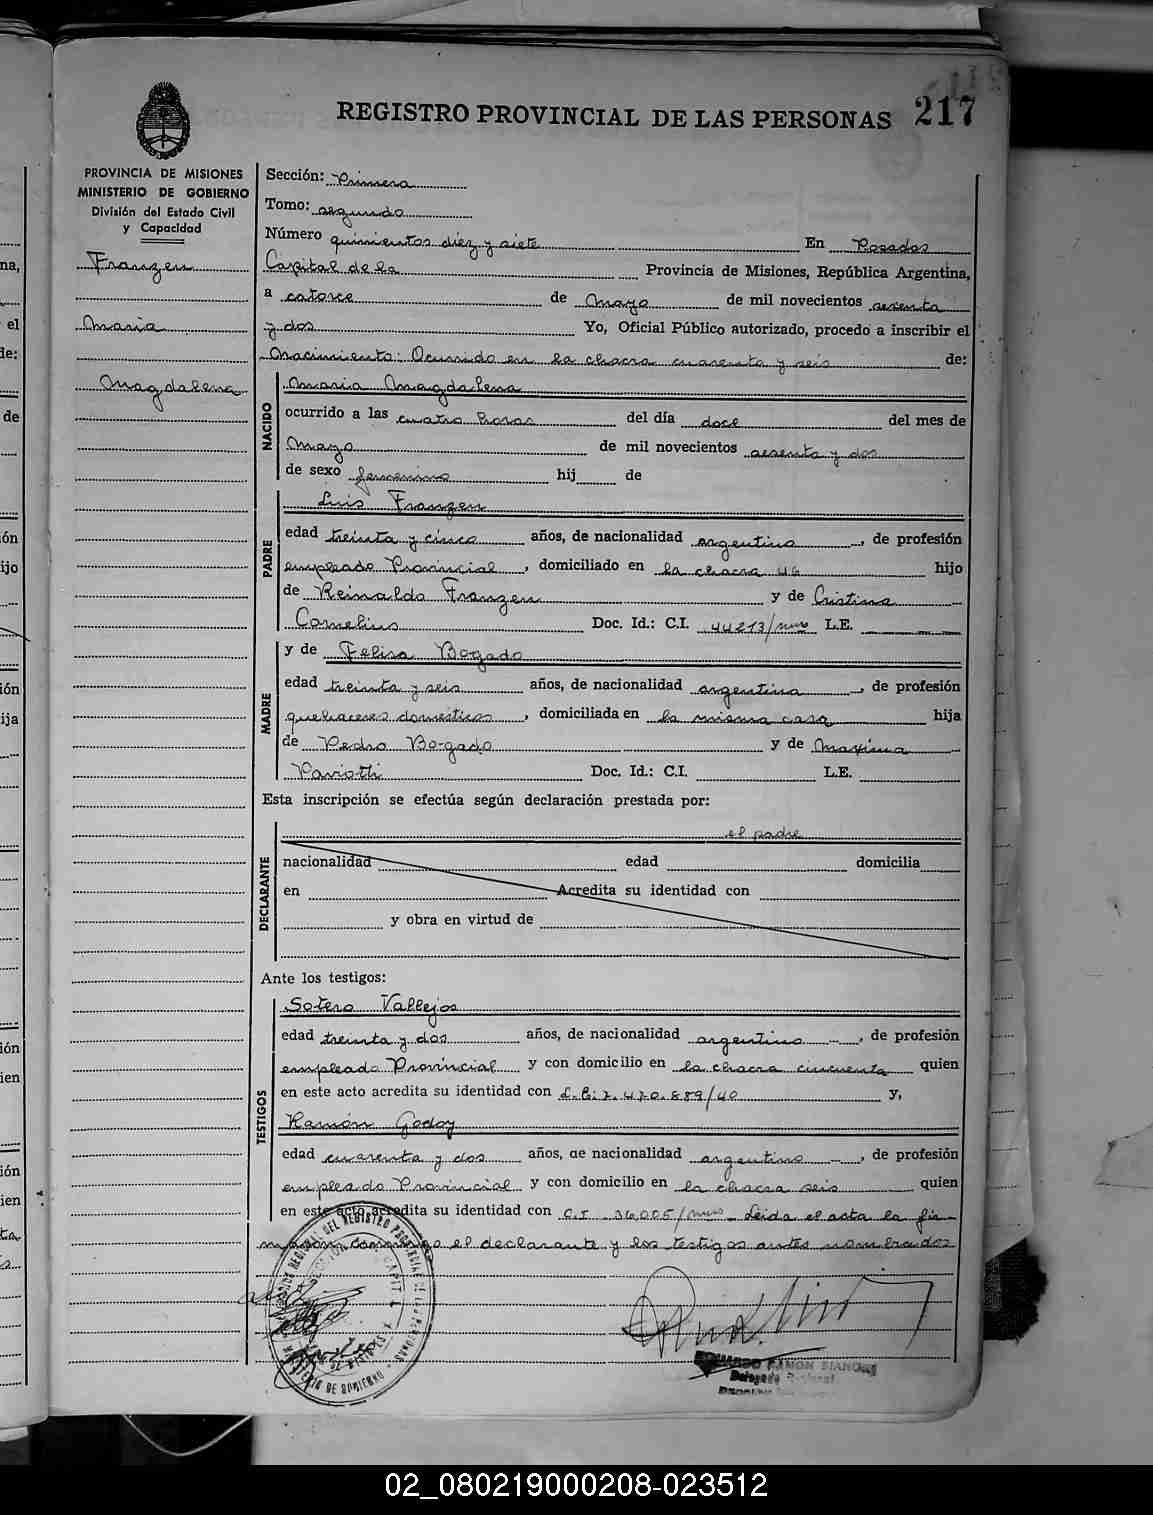 REGISTRO PROVINCIAL DE LAS PERSONAS 217
PROVINCIA DE MISIONES
MINISTERIO DE GOBIERNO
División del Estado Civil
y Capacidad
Franzen
Maria
Magdalena
Sección: Primera
Tomo: segundo
Número quinientos diez y siete En Posadas
Capital de la Provincia de Misiones, República Argentina,
a catorce de Mayo de mil novecientos sesenta
y dos Yo, Oficial Público autorizado, procedo a inscribir el
nacimiento: Ocurrido en la chacra cuarenta y seis de:
NACIDO
Maria Magdalena
ocurrido a las cuatro horas del día doce del mes de
Mayo de mil novecientos sesenta y dos
de sexo femenino hij de
PADRE
Luis Franzen
edad treinta y cinco años, de nacionalidad argentino, de profesión
empleado Provincial, domiciliado en la chacra 46 hijo
de Reinaldo Franzen y de Cristina
Cornelius Doc. Id.: C.I. 44213/mnes L.E.
MADRE
y de Felisa Bogado
edad treinta y seis años, de nacionalidad argentina, de profesión
quehaceres domesticos, domiciliada en la misma casa hija
de Pedro Bogado y de Maxima
Paviotti Doc. Id.: C.I. L.E.
Esta inscripción se efectúa según declaración prestada por:
DECLARANTE
el padre
nacionalidad edad domicilia
en Acredita su identidad con
y obra en virtud de
Ante los testigos:
TESTIGOS
Sotero Vallejos
edad treinta y dos años, de nacionalidad argentino, de profesión
empleado Provincial y con domicilio en la chacra cincuenta quien
en este acto acredita su identidad con L.E: 7.470.889/40 y,
Ramón Godoy
edad cuarenta y dos años, de nacionalidad argentino, de profesión
empleado Provincial y con domicilio en la chacra seis quien
en este acto acredita su identidad con C.I 36005/mnes Leida el acta la fir-
maron conmigo el declarante y los testigos antes nombrados
EDUARDO RAMON BIANCHI
Delegado Regional
02_080219000208-023512